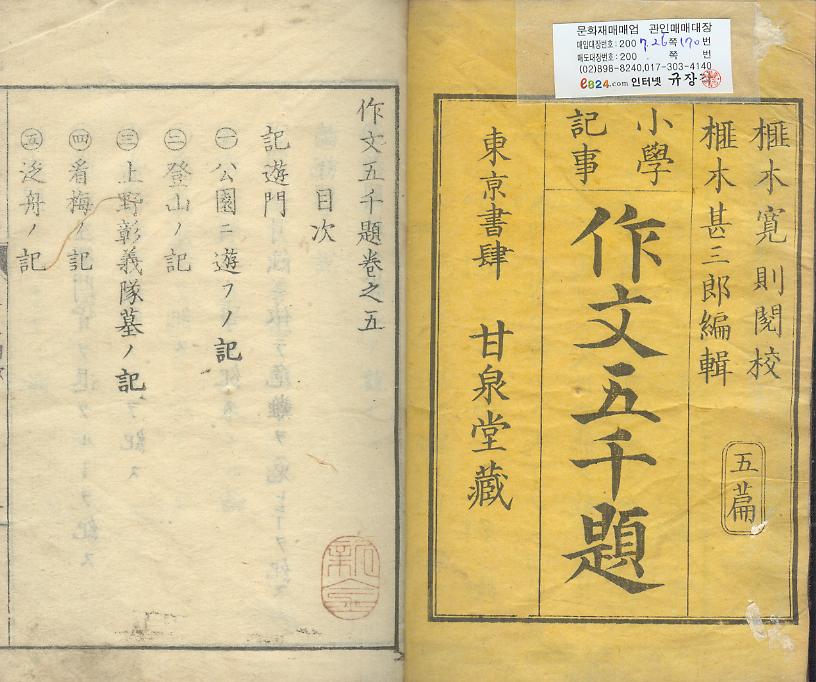 문화재매매업 관인매매대장
매입대장번호: 200 7.26쪽 170번
매도대장번호: 200 쪽 번
(02)898-8240,017-303-4140
e824.com 인터넷 규장각
榧木寛則閱校
榧木甚三郎編輯
五萹
小學
記事
作文五千題
東亰書肆 甘泉堂藏
作文五千題卷之五
目次
記遊門
㊀公園ニ遊フノ記
㊁登山ノ記
㊂上野彰義隊墓ノ記
㊃看梅ノ記
㊄泛舟ノ記